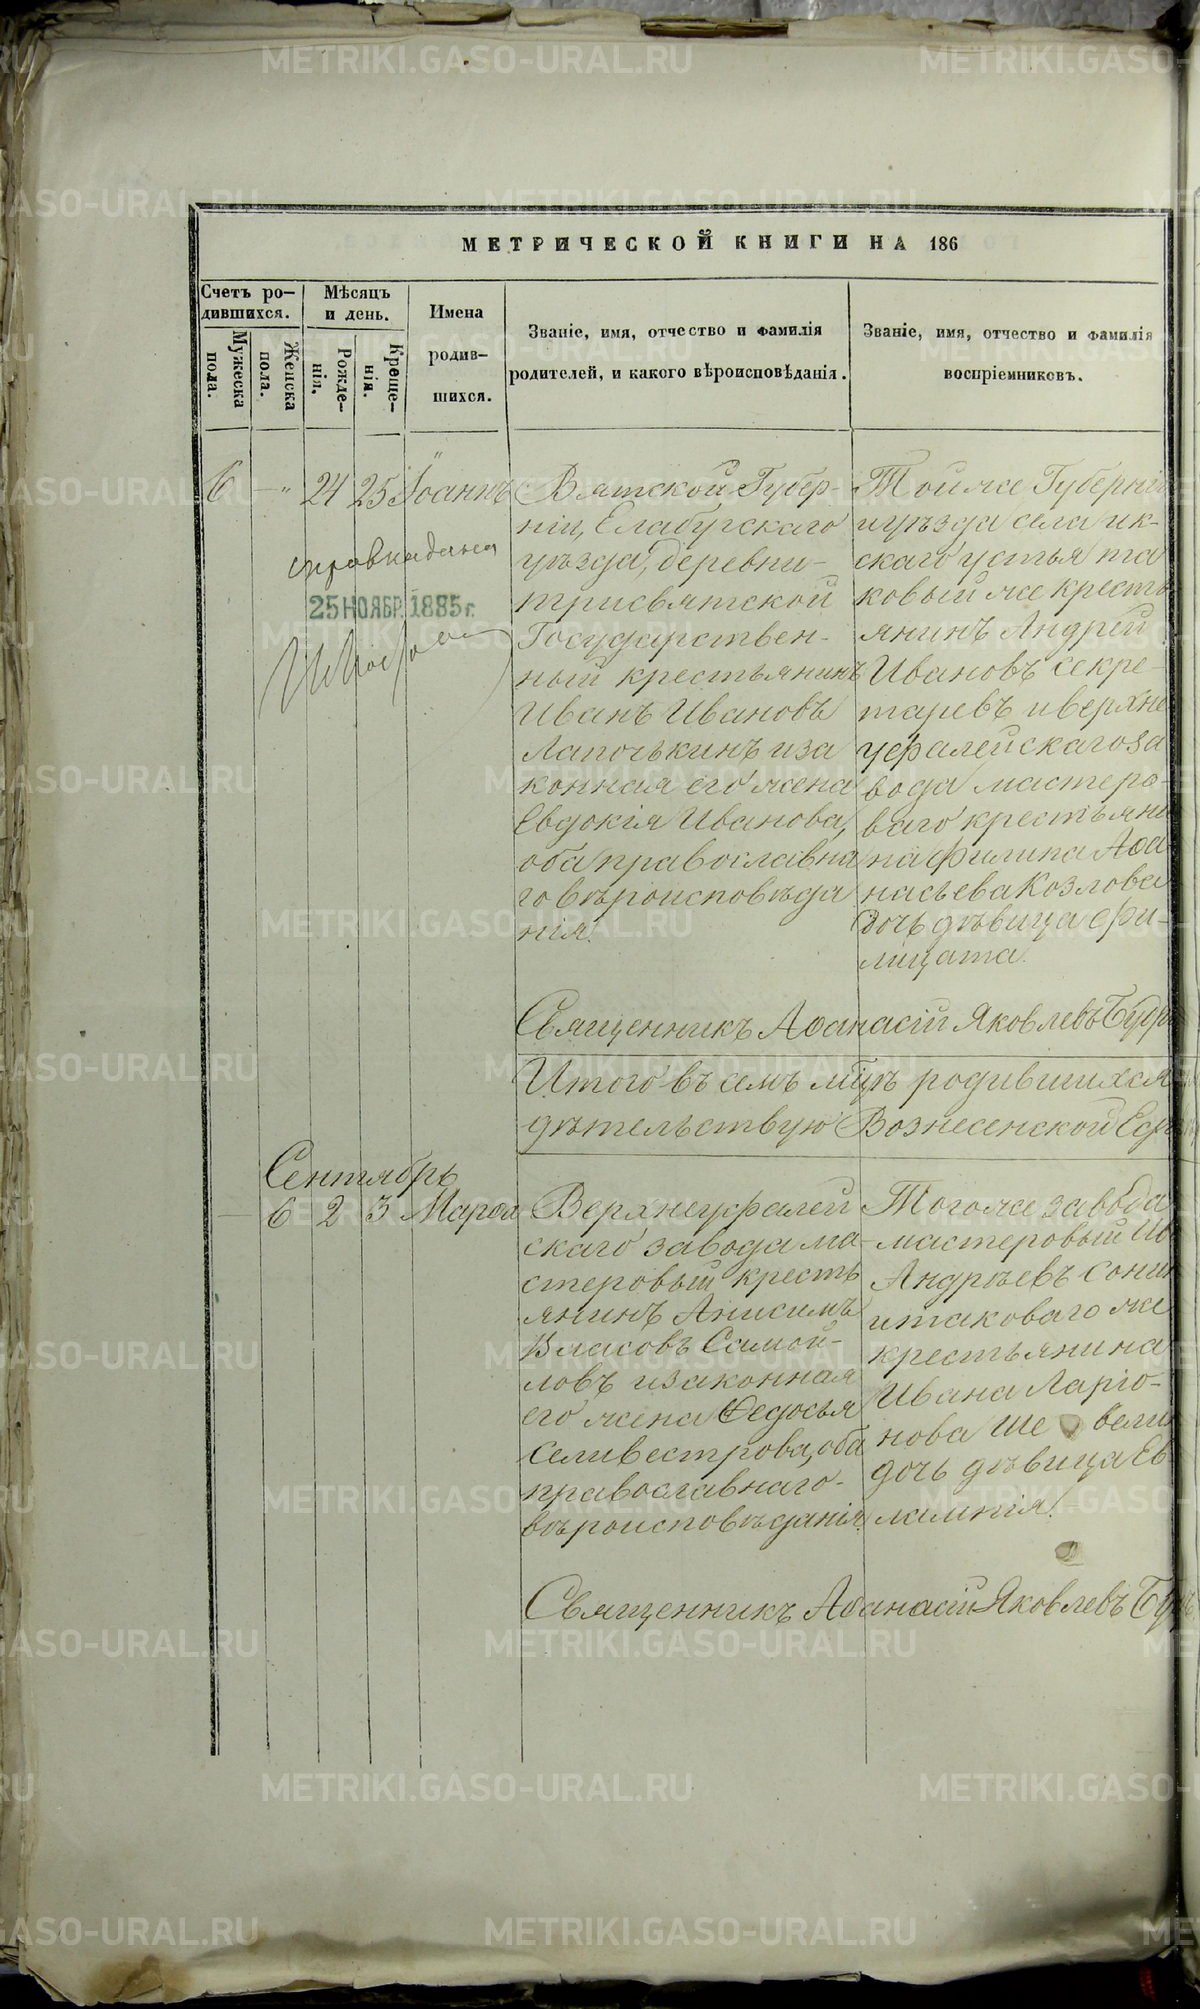 МЕТРИЧЕСКОЙ КНИГИ НА 186
Счетъ ро-
дившихся.
Мужеска
пола.
Женска
пола.
Мѣсяцъ
и день.
Рожде-
нія.
Креще-
нія.
Имена
родив-
шихся.
Званіе, имя, отчество и фамилія
родителей, и какого вѣроисповѣданія.
Званіе, имя, отчество и фамилія
воспріемниковъ.
6 - " 24 25 Іоаннъ
справка дана
25 НОЯБР. 1885 г.
Вятской Губер-
ніи, Елабугскаго
уѣзда, деревни-
трисвятской
Государствен-
ный крестьянинъ
Иванъ Ивановъ
Лапочькинъ и за
конная его жена
Евдокія Иванова,
оба православна
го вѣроисповѣда
нія.
Той же Губерніи
и уѣзда села ик-
скаго устья та
ковый же кресть
янинъ Андрей
Ивановъ секре-
таревъ и верхне
уфалейскаго за
вода мастеро-
ваго крестьяни
на Филипа Афа
насьева Козлова
дочь дѣвица Фи-
лицата.
Священникъ Афанасій Яковлевъ
Итого въ семъ мцѣ родившихся
дѣтельствую Вознесенской
Сентябрь
6 2 3 Марфа
Верхнеуфалей
скаго завода ма-
стеровый кресть
янинъ Анисимъ
Власовъ Самой-
ловъ и законная
его жена Федосья
Селивестрова, оба
православнаго-
вѣроисповѣданія.
Того же завода
мастеровый
Андрѣевъ
и таковаго же
крестьянина
Ивана Ларіо-
нова Ше вели
дочь дѣвица Ев
лампія.
Священникъ Афанасій Яковлевъ
METRIKI.GASO-URAL.RU